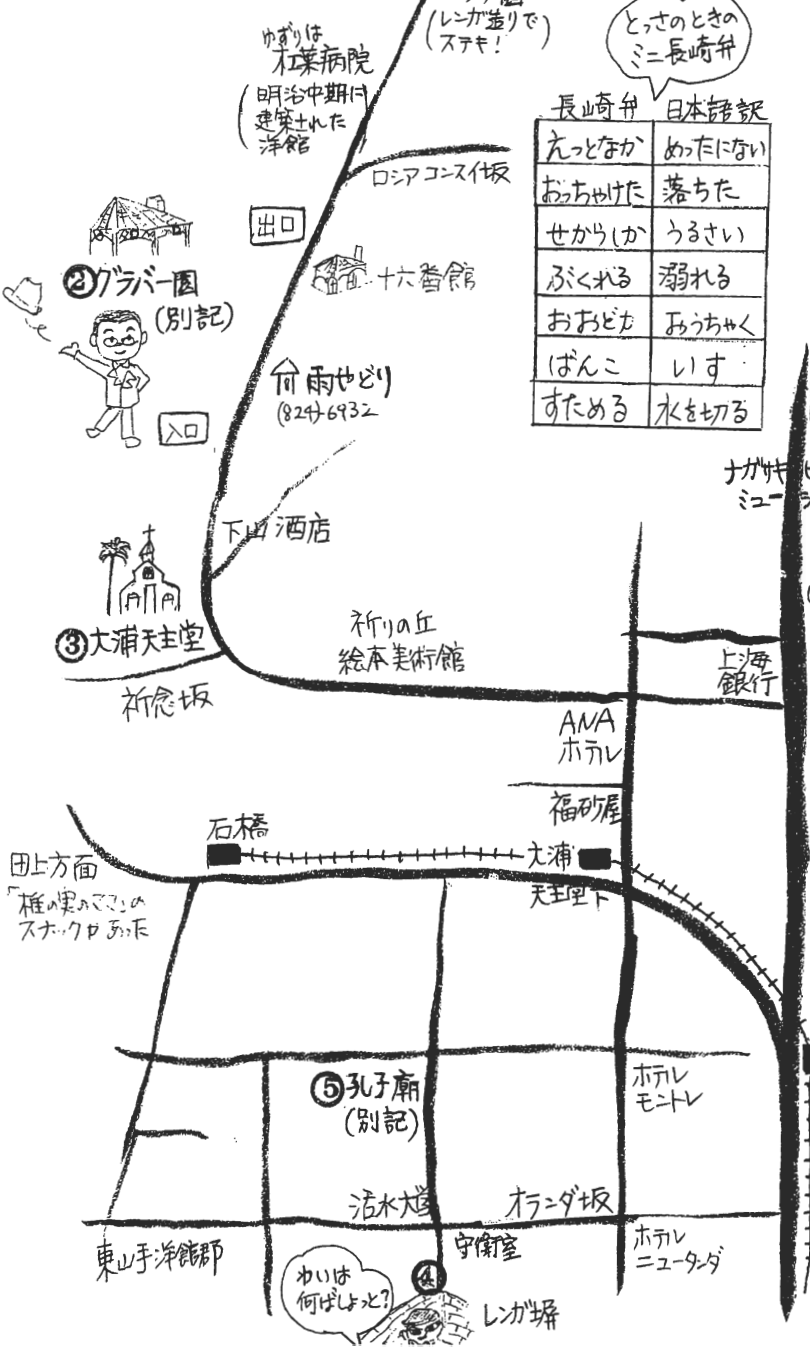 (レンガ造りで
ステキ!)
とっさのときの
ミニ長崎弁
長崎弁 日本語訳
えっとなか めったにない
おっちゃけた 落ちた
せからしか うるさい
ぶくれる 溺れる
おおどか おうちゃく
ばんこ いす
すためる 水を切る
ゆずりは
杠葉病院
(明治中期に
建築された
洋館
ロシアコンスイ坂
出口
②グラバー園
(別記)
十六番館
雨やどり
(824)-6932
入口
下山酒店
③大浦天主堂
祈念坂
祈りの丘
絵本美術館
ナガサキ
ミュー
上海
銀行
ANA
ホテル
福砂屋
石橋
大浦
天主堂下
田上方面
「椎の実のママ」の
スナックがあった
⑤孔子廟
(別記)
ホテル
モントレ
活水大学
オランダ坂
東山手洋館郡
守衛室
ホテル
ニュータンダ
わいは
何ばしよっと?
④
レンガ塀